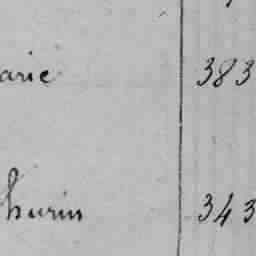 arie 383
thurin 343